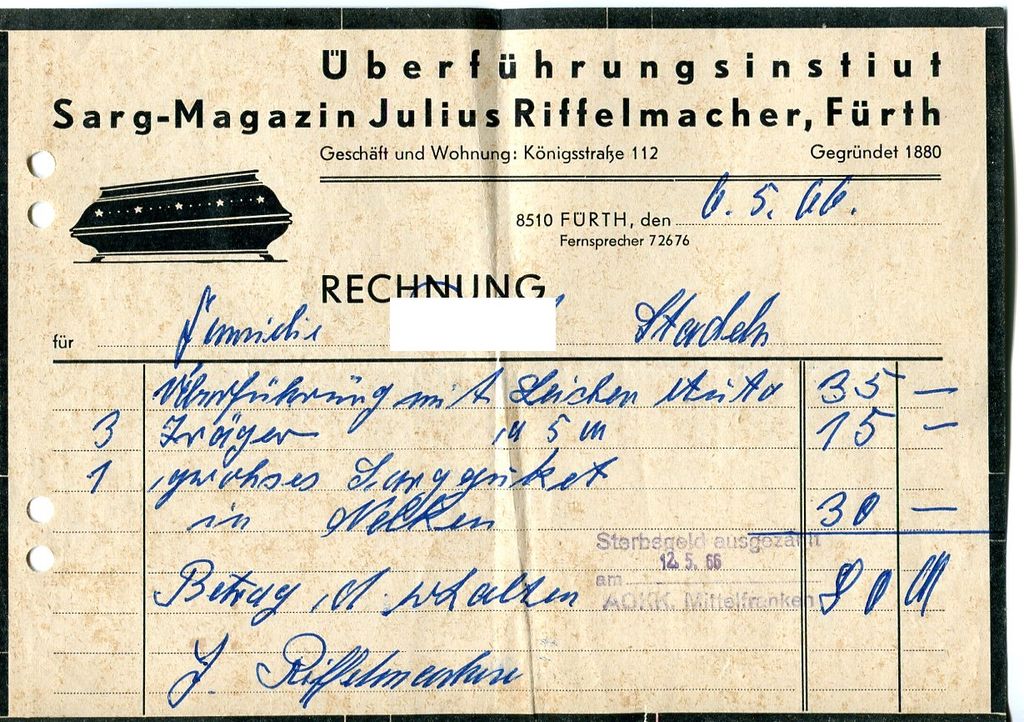 Überführungsinstiut
Sarg-Magazin Julius Riffelmacher, Fürth
Geschäft und Wohnung: Königsstraße 112 Gegründet 1880
8510 FÜRTH, den 6. 5. 66.
Fernsprecher 72676
RECHNUNG
für Familie Stadeln
Überführung mit Leichen Auto 35 —
3 Träger a 5 M 15 —
1 grohses Sargbuket
in Nelken 30 —
Sterbegeld ausgezahlt
am 12. 5. 66
AOKK. Mittelfranken
Betrag erhalten 80 M
J. Riffelmacher